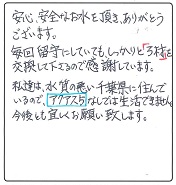 安心、安全なお水を頂き、ありがとう
ございます。
毎回留守にしていても、しっかりとろ材を
交換して下さるので感謝しています。
私達は、水質の悪い千葉県に住んで
いるので、アクアス5なしでは生活できません。
今後とも宜しくお願い致します。